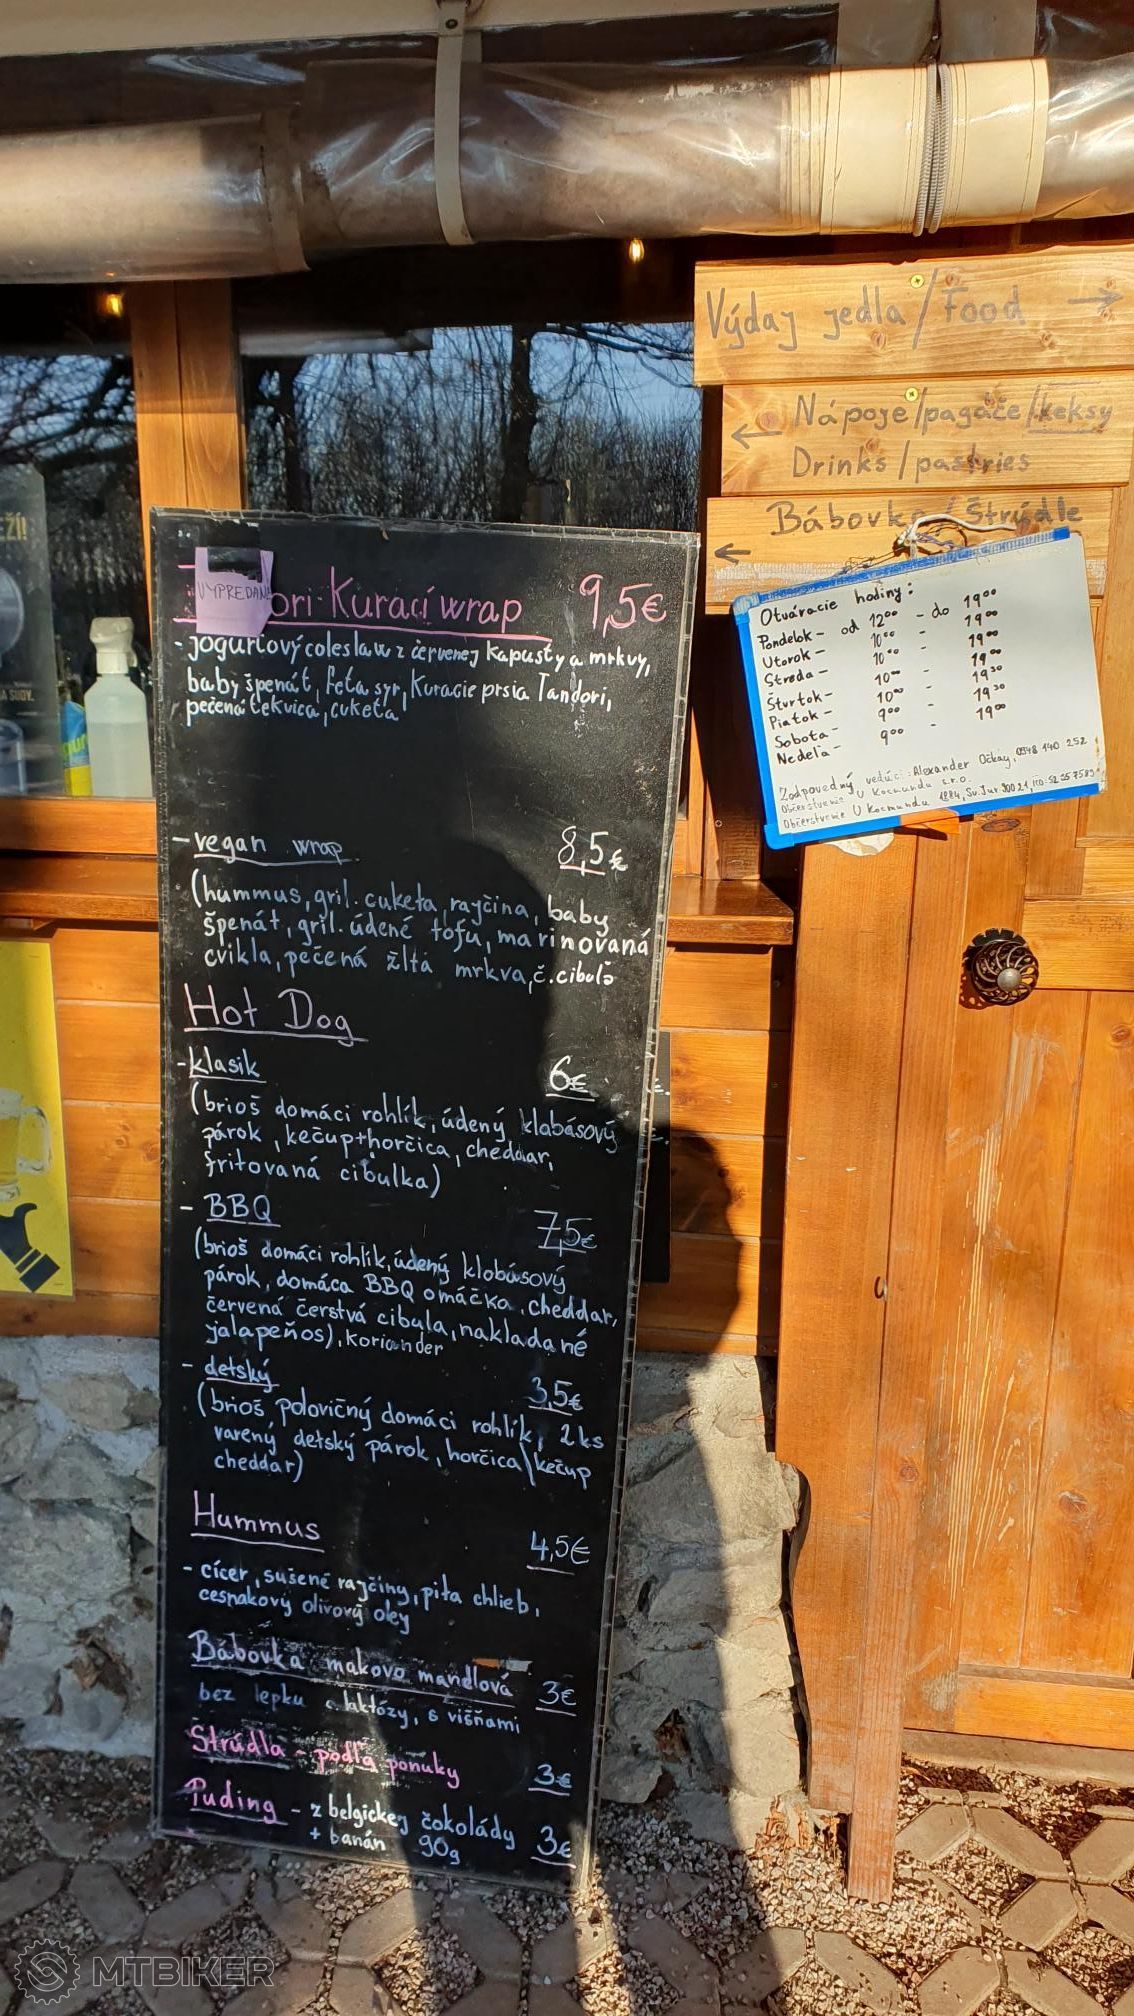 Výdaj jedla/Food →
← Nápoje/pagáče/keksy
Drinks/pastries
Bábovka/Štrúdle
←
Otváracie hodiny:
Pondelok - od 12⁰⁰ - do 19⁰⁰
Utorok - 10⁰⁰ - 19⁰⁰
Streda - 10⁰⁰ - 19⁰⁰
Štvrtok - 10⁰⁰ - 19⁰⁰
Piatok - 10⁰⁰ - 19³⁰
Sobota - 9⁰⁰ - 19³⁰
Nedeľa - 9⁰⁰ - 19⁰⁰
Zodpovedný vedúci: Alexander Očkay, 0948 140 252
Občerstvenie U Kocmundu s.r.o.
Občerstvenie U Kocmundu
VYPREDANÉ
ori Kuraci wrap 9,5€
- jogurtový coleslaw z červenej kapusty a mrkvy,
baby špenát, feta syr, kuracie prsia Tandori,
pečená tekvica, cuketa
- vegan wrap 8,5€
(hummus, gril. cuketa, rajčina, baby
špenát, gril. údené tofu, marinovaná
cvikla, pečená žltá mrkva, č. cibuľa
Hot Dog
- klasik 6€
(brioš domáci rohlík, údený klabásový
párok, kečup+horčica, cheddar,
fritovaná cibulka)
- BBQ 7,5€
(brioš domáci rohlík, údený klobásový
párok, domáca BBQ omáčka, cheddar,
červená čerstvá cibula, nakladané
jalapeňos), koriander
- detský 3,5€
(brioš polovičný domáci rohlík, 2ks
varený detský párok, horčica\kečup
cheddar)
Hummus 4,5€
- cícer, sušené rajčiny, pita chlieb,
cesnakový olivový olej
Bábovka makovo mandlová 3€
bez lepku a laktózy, s višňami
Štrúdla - podľa ponuky 3€
Puding - z belgickej čokolády 3€
+ banán 90g
MTBIKER